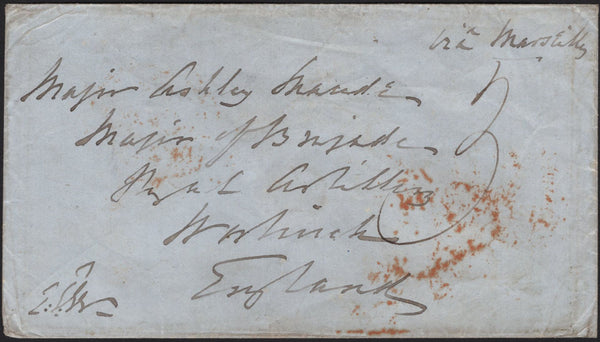 viâ Marseilles
Major Ashley Maude
Major of Brigade
Royal Artillery
Woolwich
England
3